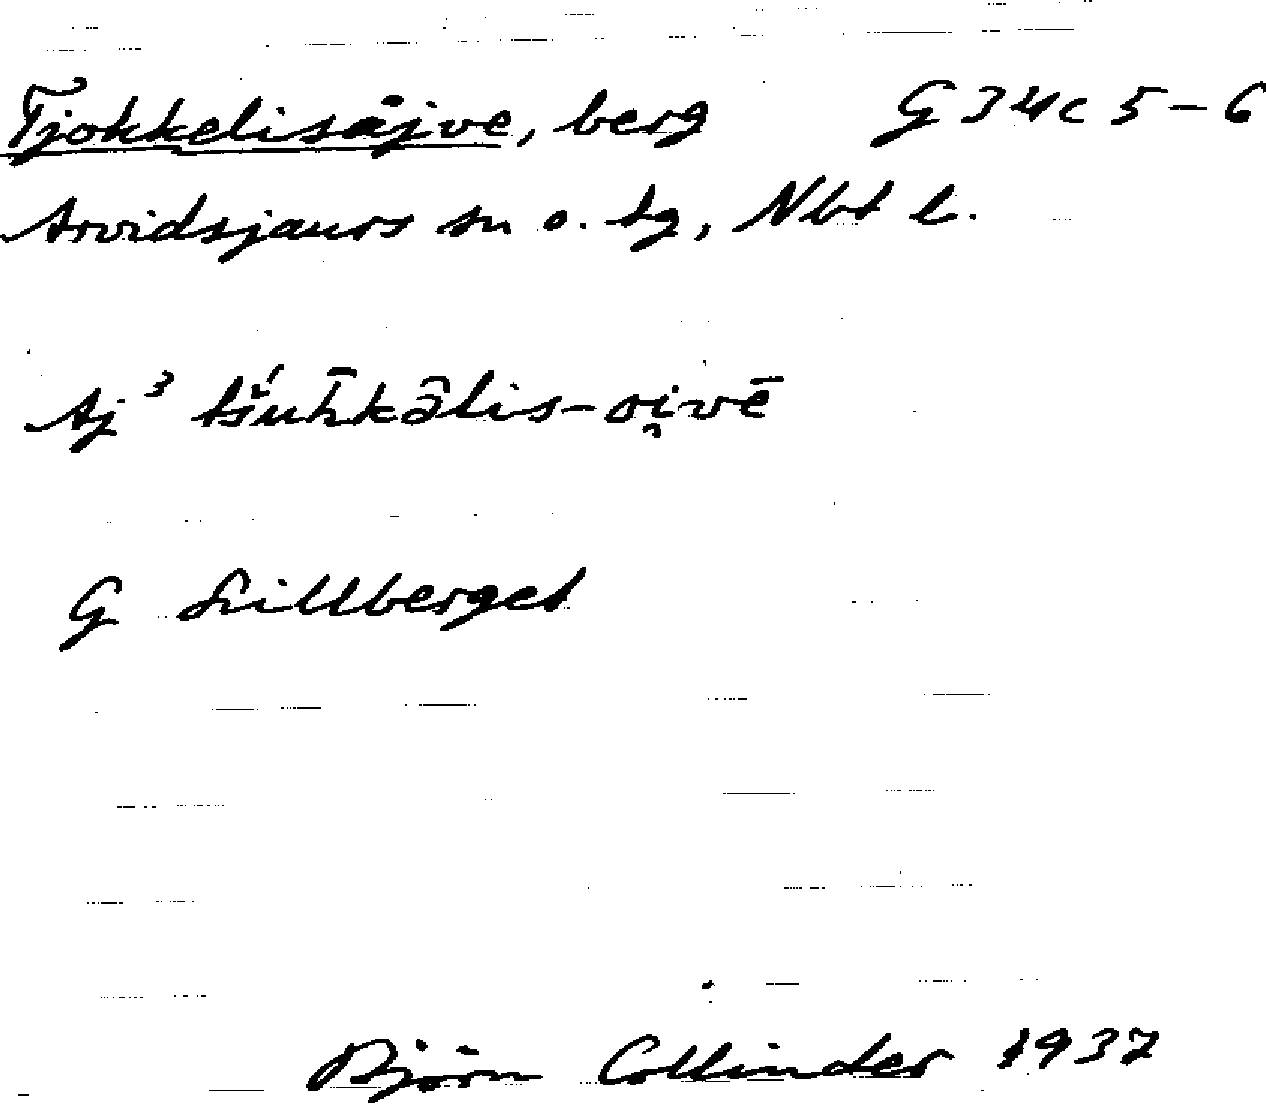 Tjokkelisåjve, berg G 34c 5-6
Arvidsjaurs sn o. tg, Nbt l.
Aj³ tš́uh̄kə̑lis-oi̯vē
G Lillberget
Björn Collinder 1937